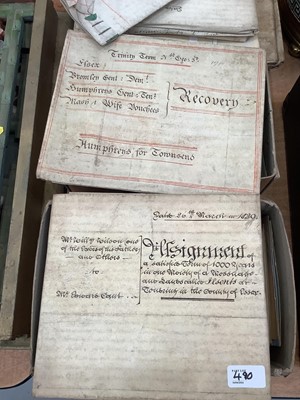 Trinity Term
Essex
Bromley Gent: "Dem!
Humphreys Gent: "Ten!
Mash & Wife Vouchees
Recovery
Humphreys, for Townsend
Dated 26th March
Mr. Willm. Wilson one
of the
and Others
to
Mr. Edward Court
Assignment
of a satisfied Term of 1000 Years
in one Moiety of a Messuage
and Lands called
in the County of Essex
480